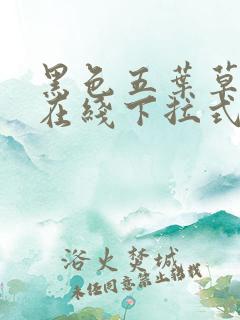 黑色五葉草
在綫下拉式
浴火焚城
未经同意禁止转载